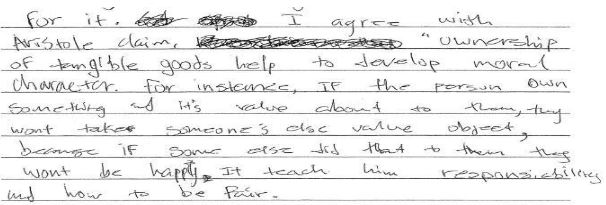 for it. I agree with
Aristole claim. "ownership
of tangible goods help to develop moral
character. for instance, IF the person own
something and it's value about to them, they
wont take someone's else value object,
because if some else did that to them they
wont be happy. It teach him responsiability
and how to be fair.